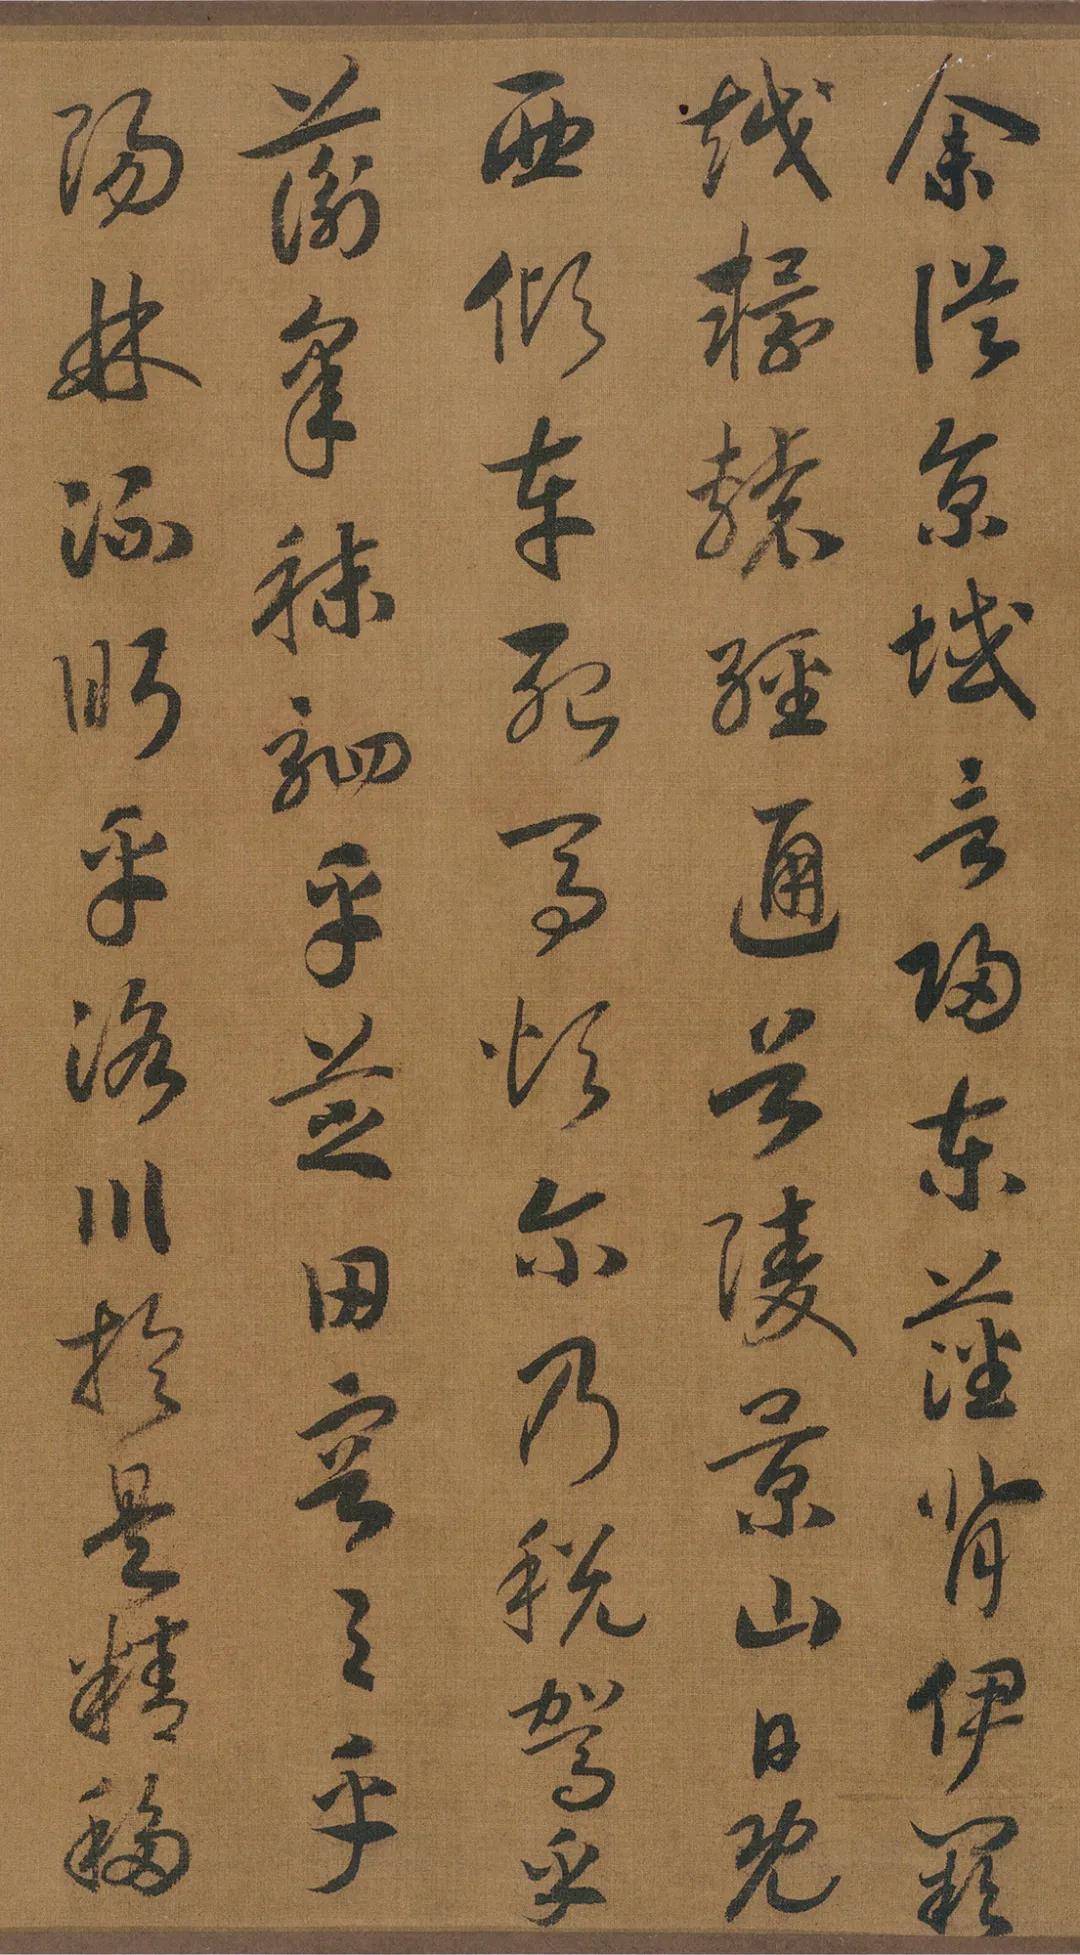 余從京域言歸東藩背伊闕
越轘轅經通谷陵景山日既
西傾車殆馬煩尔乃稅駕乎
蘅皋秣駟乎芝田容與乎
陽林流眄乎洛川於是精移